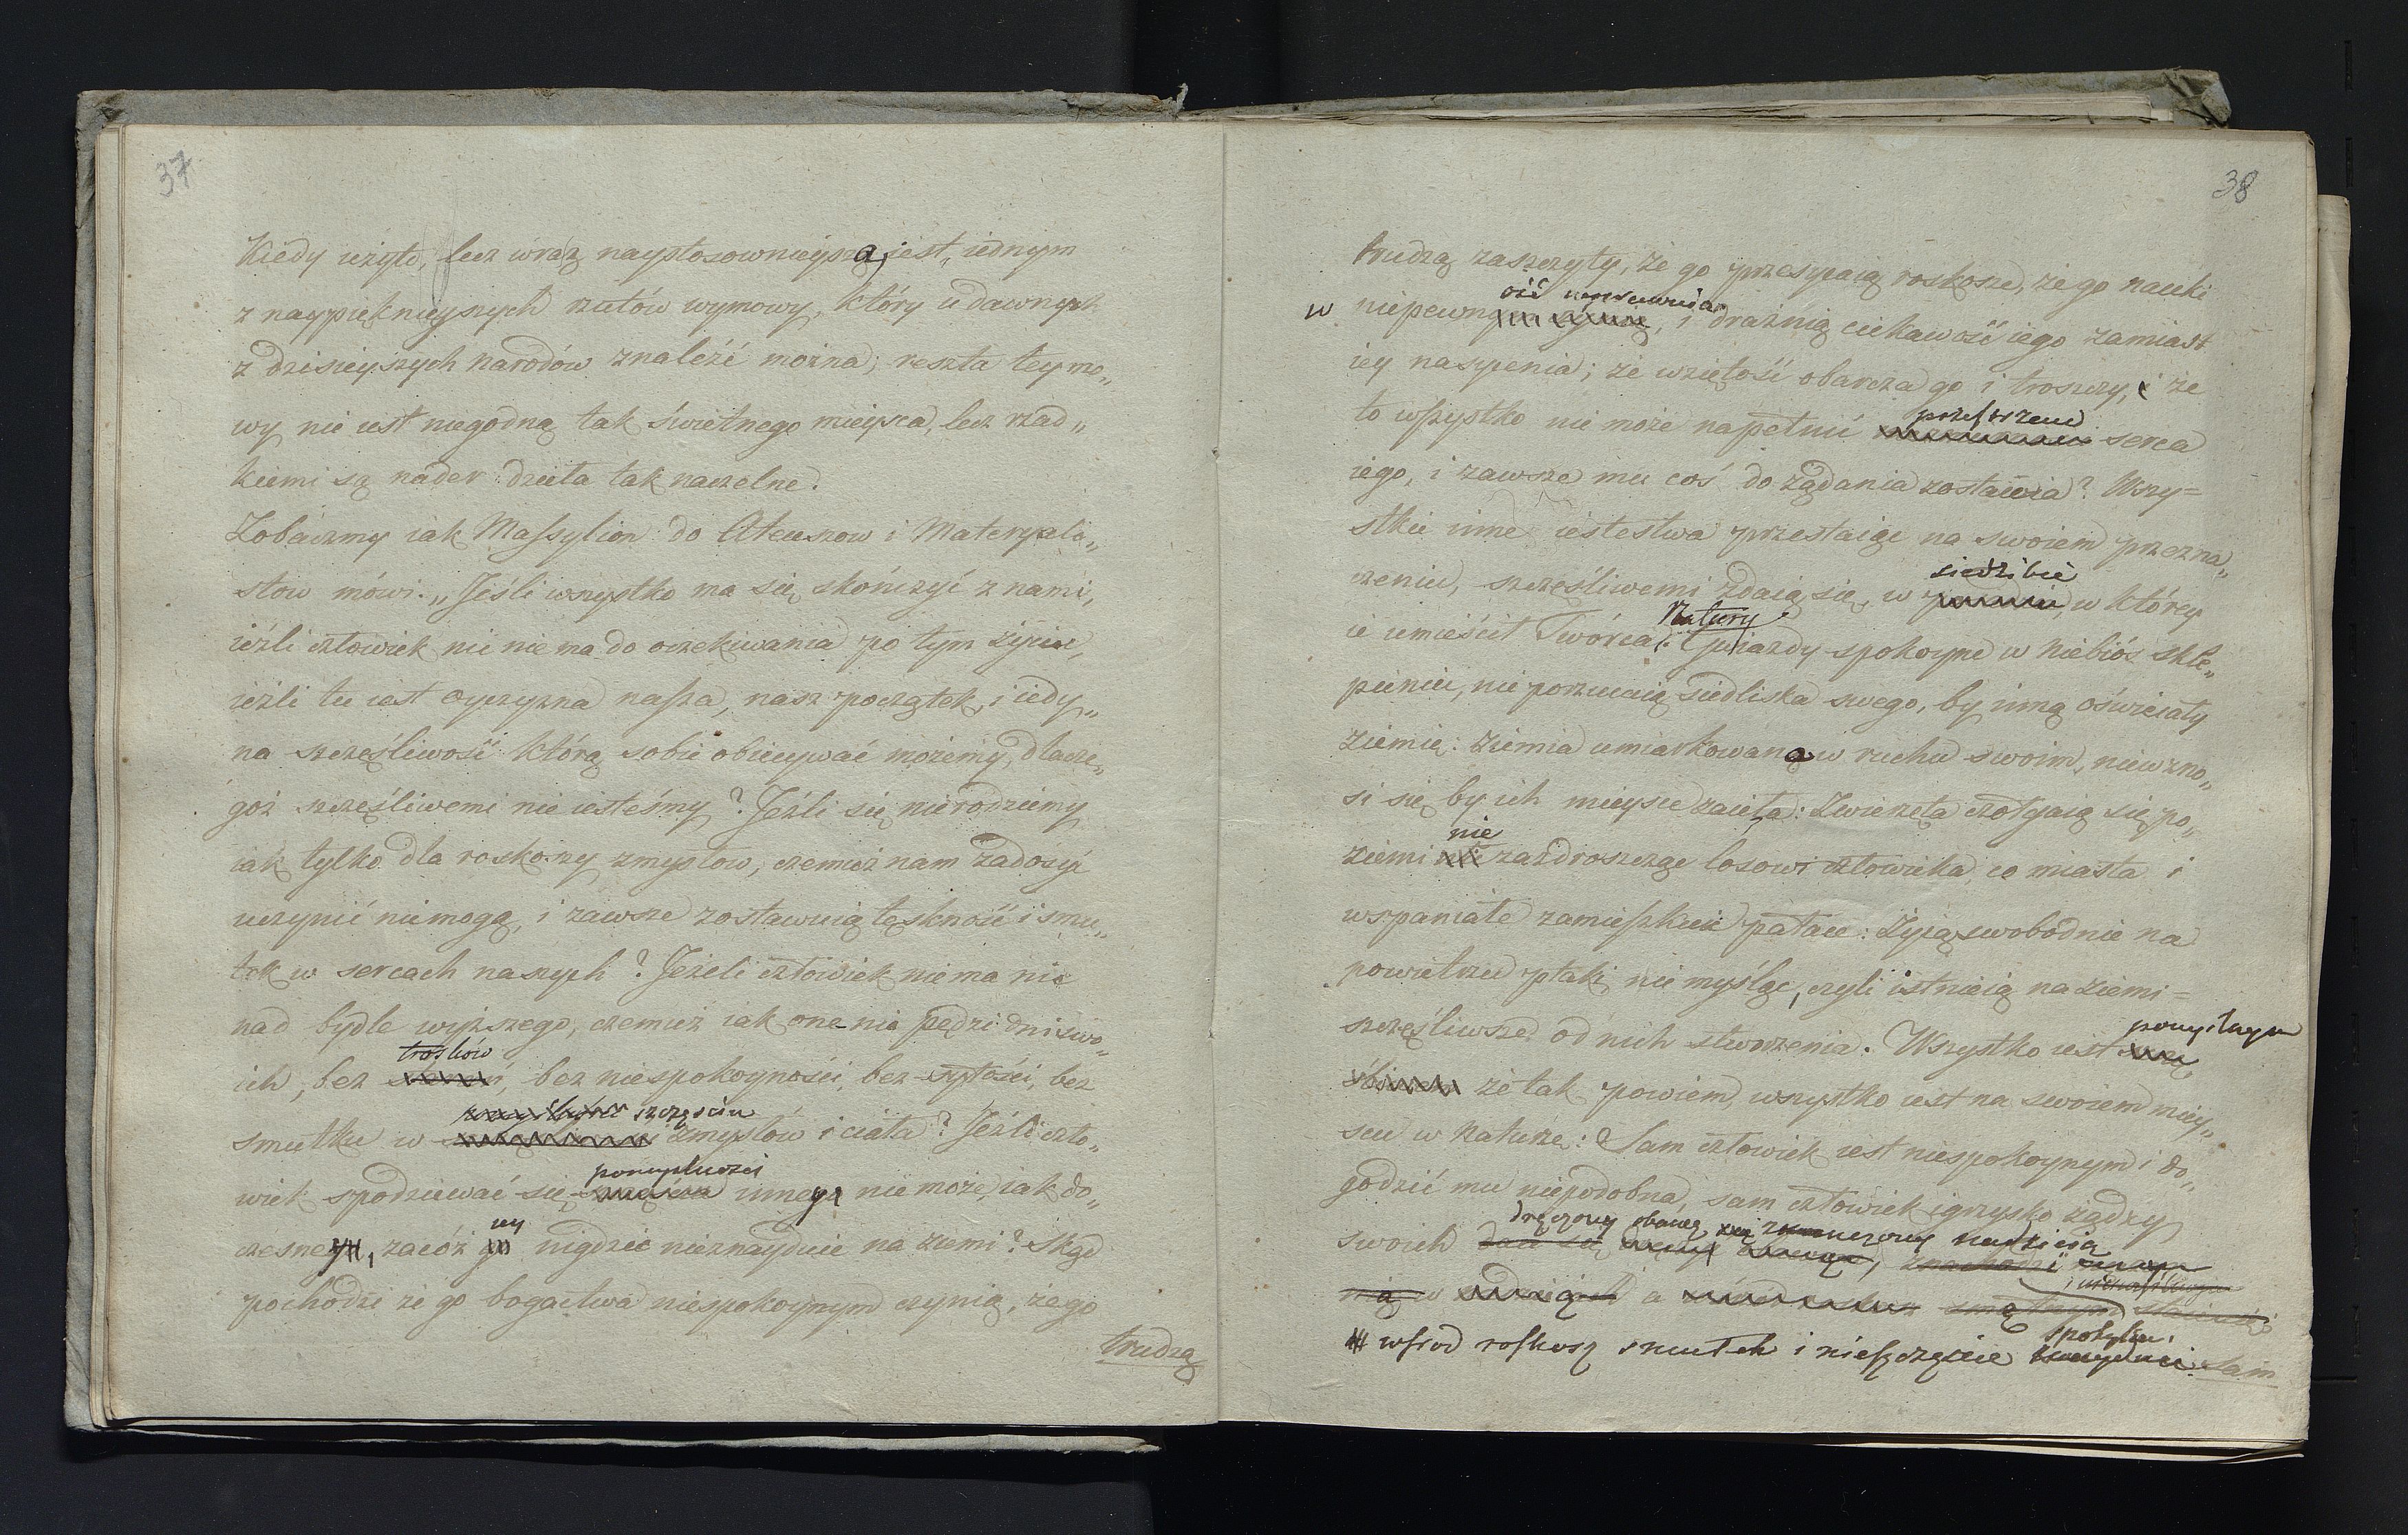 37
Kiedy użyto, lecz wraz naystosownieyszą jest, iednym
z naypięknieyszych rzutów wymowy, który u dawnych
z dzisieyszych narodów znaleźć można; reszta tey mo„
wy nie iest niegodną tak świetnego mieysca, lecz rzad„
kiemi są nader dzieła tak naczelne.
Zobaczmy iak Massylion do Ateuszow i Materyali„
stow mówi. „Jeśli wszystko ma się skończyć z nami,
ieźli człowiek nic nie ma do oczekiwania po tym życiu,
ieźli tu iest oyczyzna nasza, nasz początek, i iedy„
na szczęśliwość którą sobie obiecywać możemy, dlacze„
goż szczęśliwemi nie iesteśmy? Jeźli się nie rodziemy
iak tylko dla roskoszy zmysłow, czemuż nam zadosyć
uczynić nie mogą, i zawsze zostawuią tęskność i smu„
tek w sercach naszych? Jeżeli człowiek nie ma nic
nad bydle wyższego, czemuż iak one nie pędzi dni swo„
trosków
ich, bez niespokoyności, bez sytości, bez
szczęściu
smutku w zmysłów i ciała? Jeźli czło„
pomyślności
wiek spodziewać się szczęścia inney nie może, iak do„
iey
czesney, zacóż nigdzie nieznayduie na ziemi? Skąd
pochodzi że go bogactwa niespokoynym czynią, że go
trudzą
38
trudzą zaszczyty, że go przesycaią roskosze, że go nauki
ość wprawuią
w niepewn, i drażnią ciekawość iego zamiast
iey nasycenia; że wziętość obarcza go i troszczy, i że
przestrzeni
to wszystko nie może napełnić serca
iego, i zawsze mu coś do żądania zostawia? Wszy=
stkie inne iestestwa przestaiąc na swoiem przezna„
siedzibie
czeniu, szczęśliwemi zdaią się, w którey
Natury
ie umieścił Twórca: Gwiazdy spokoyne w niebios skle„
pieniu, nie porzucaią siedliska swego, by inną oświecały
ziemię: Ziemia umiarkowana w ruchu swoim, niewzno„
si się by ich mieysce zaięła: Zwierzęta czołgaią się po„
nie
ziemi zazdroszcząc losowi człowieka, co miasta i
wspaniałe zamieszkuie pałace: Żyią swobodnie na
powietrzu ptaki, nie myśląc, czyli istnieią na ziemi=
szczęśliwsze od nich stworzenia. Wszystko iest
pomyślnym
że tak powiem, wszystko iest na swoiem miey„
scu w naturze: Sam człowiek iest niespokoynym i do„
godzić mu niepodobna, sam człowiek igrzysko żądzy
dręczony obawą nadzieią
swoich
i nieszczęśliwym
w a smętnym
spotyka.
wśrod roskosz smutek i nieszczęście Sam